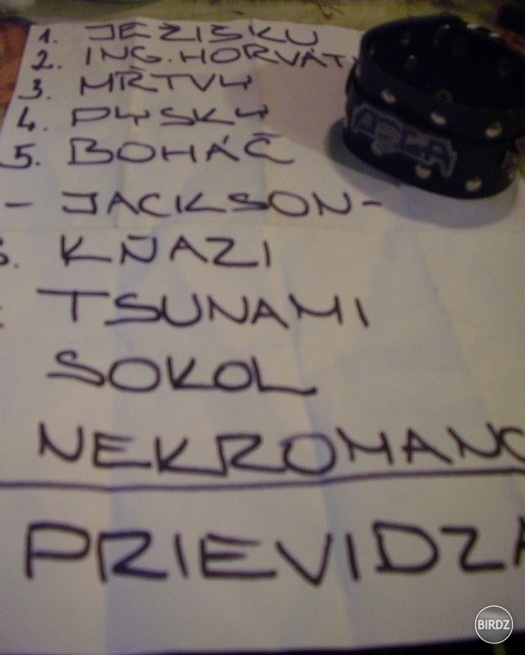 1. JEŽIŠKU
2. ING. HORVÁT
3. MŔTVY
4. PYSKY
5. BOHÁČ
- JACKSON -
KŇAZI
TSUNAMI
SOKOL
NEKROMANC
PRIEVIDZA
BIRDZ